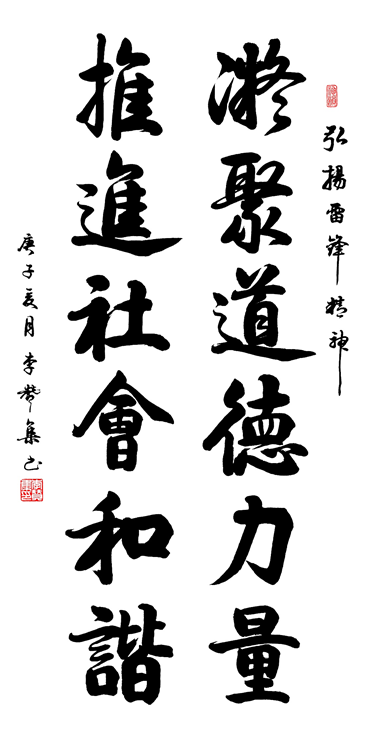 弘揚雷鋒精神
凝聚道德力量
推進社會和諧
庚子夏月李集书